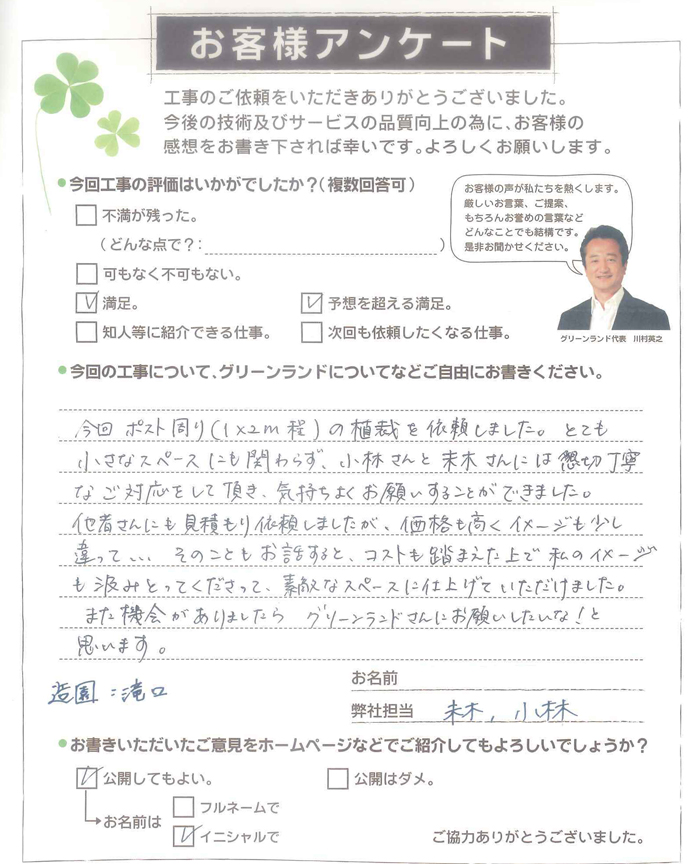 お客様アンケート
工事のご依頼をいただきありがとうございました。
今後の技術及びサービスの品質向上の為に、お客様の
感想をお書き下されば幸いです。よろしくお願いします。
●今回工事の評価はいかがでしたか?(複数回答可)
不満が残った。
(どんな点で?: )
可もなく不可もない。
満足。
予想を超える満足。
知人等に紹介できる仕事。
次回も依頼したくなる仕事。
お客様の声が私たちを熱くします。
厳しいお言葉、ご提案、
もちろんお誉めの言葉など
どんなことでも結構です。
是非お聞かせください。
グリーンランド代表 川村英之
●今回の工事について、グリーンランドについてなどご自由にお書きください。
今回 ポスト周り(1×2m程)の植栽を依頼しました。とても
小さなスペースにも関わらず、小林さんと来木さんには懇切丁寧
なご対応をして頂き、気持ちよくお願いすることができました。
他者さんにも見積もり依頼しましたが、価格も高くイメージも少し
違って... そのこともお話すると、コストも踏まえた上で私のイメージ
も汲みとってくださって、素敵なスペースに仕上げていただけました。
また機会がありましたら グリーンランドさんにお願いしたいな!と
思います。
造園:滝口
お名前
弊社担当 来木, 小林
●お書きいただいたご意見をホームページなどでご紹介してもよろしいでしょうか?
公開してもよい。
公開はダメ。
お名前は
フルネームで
イニシャルで
ご協力ありがとうございました。